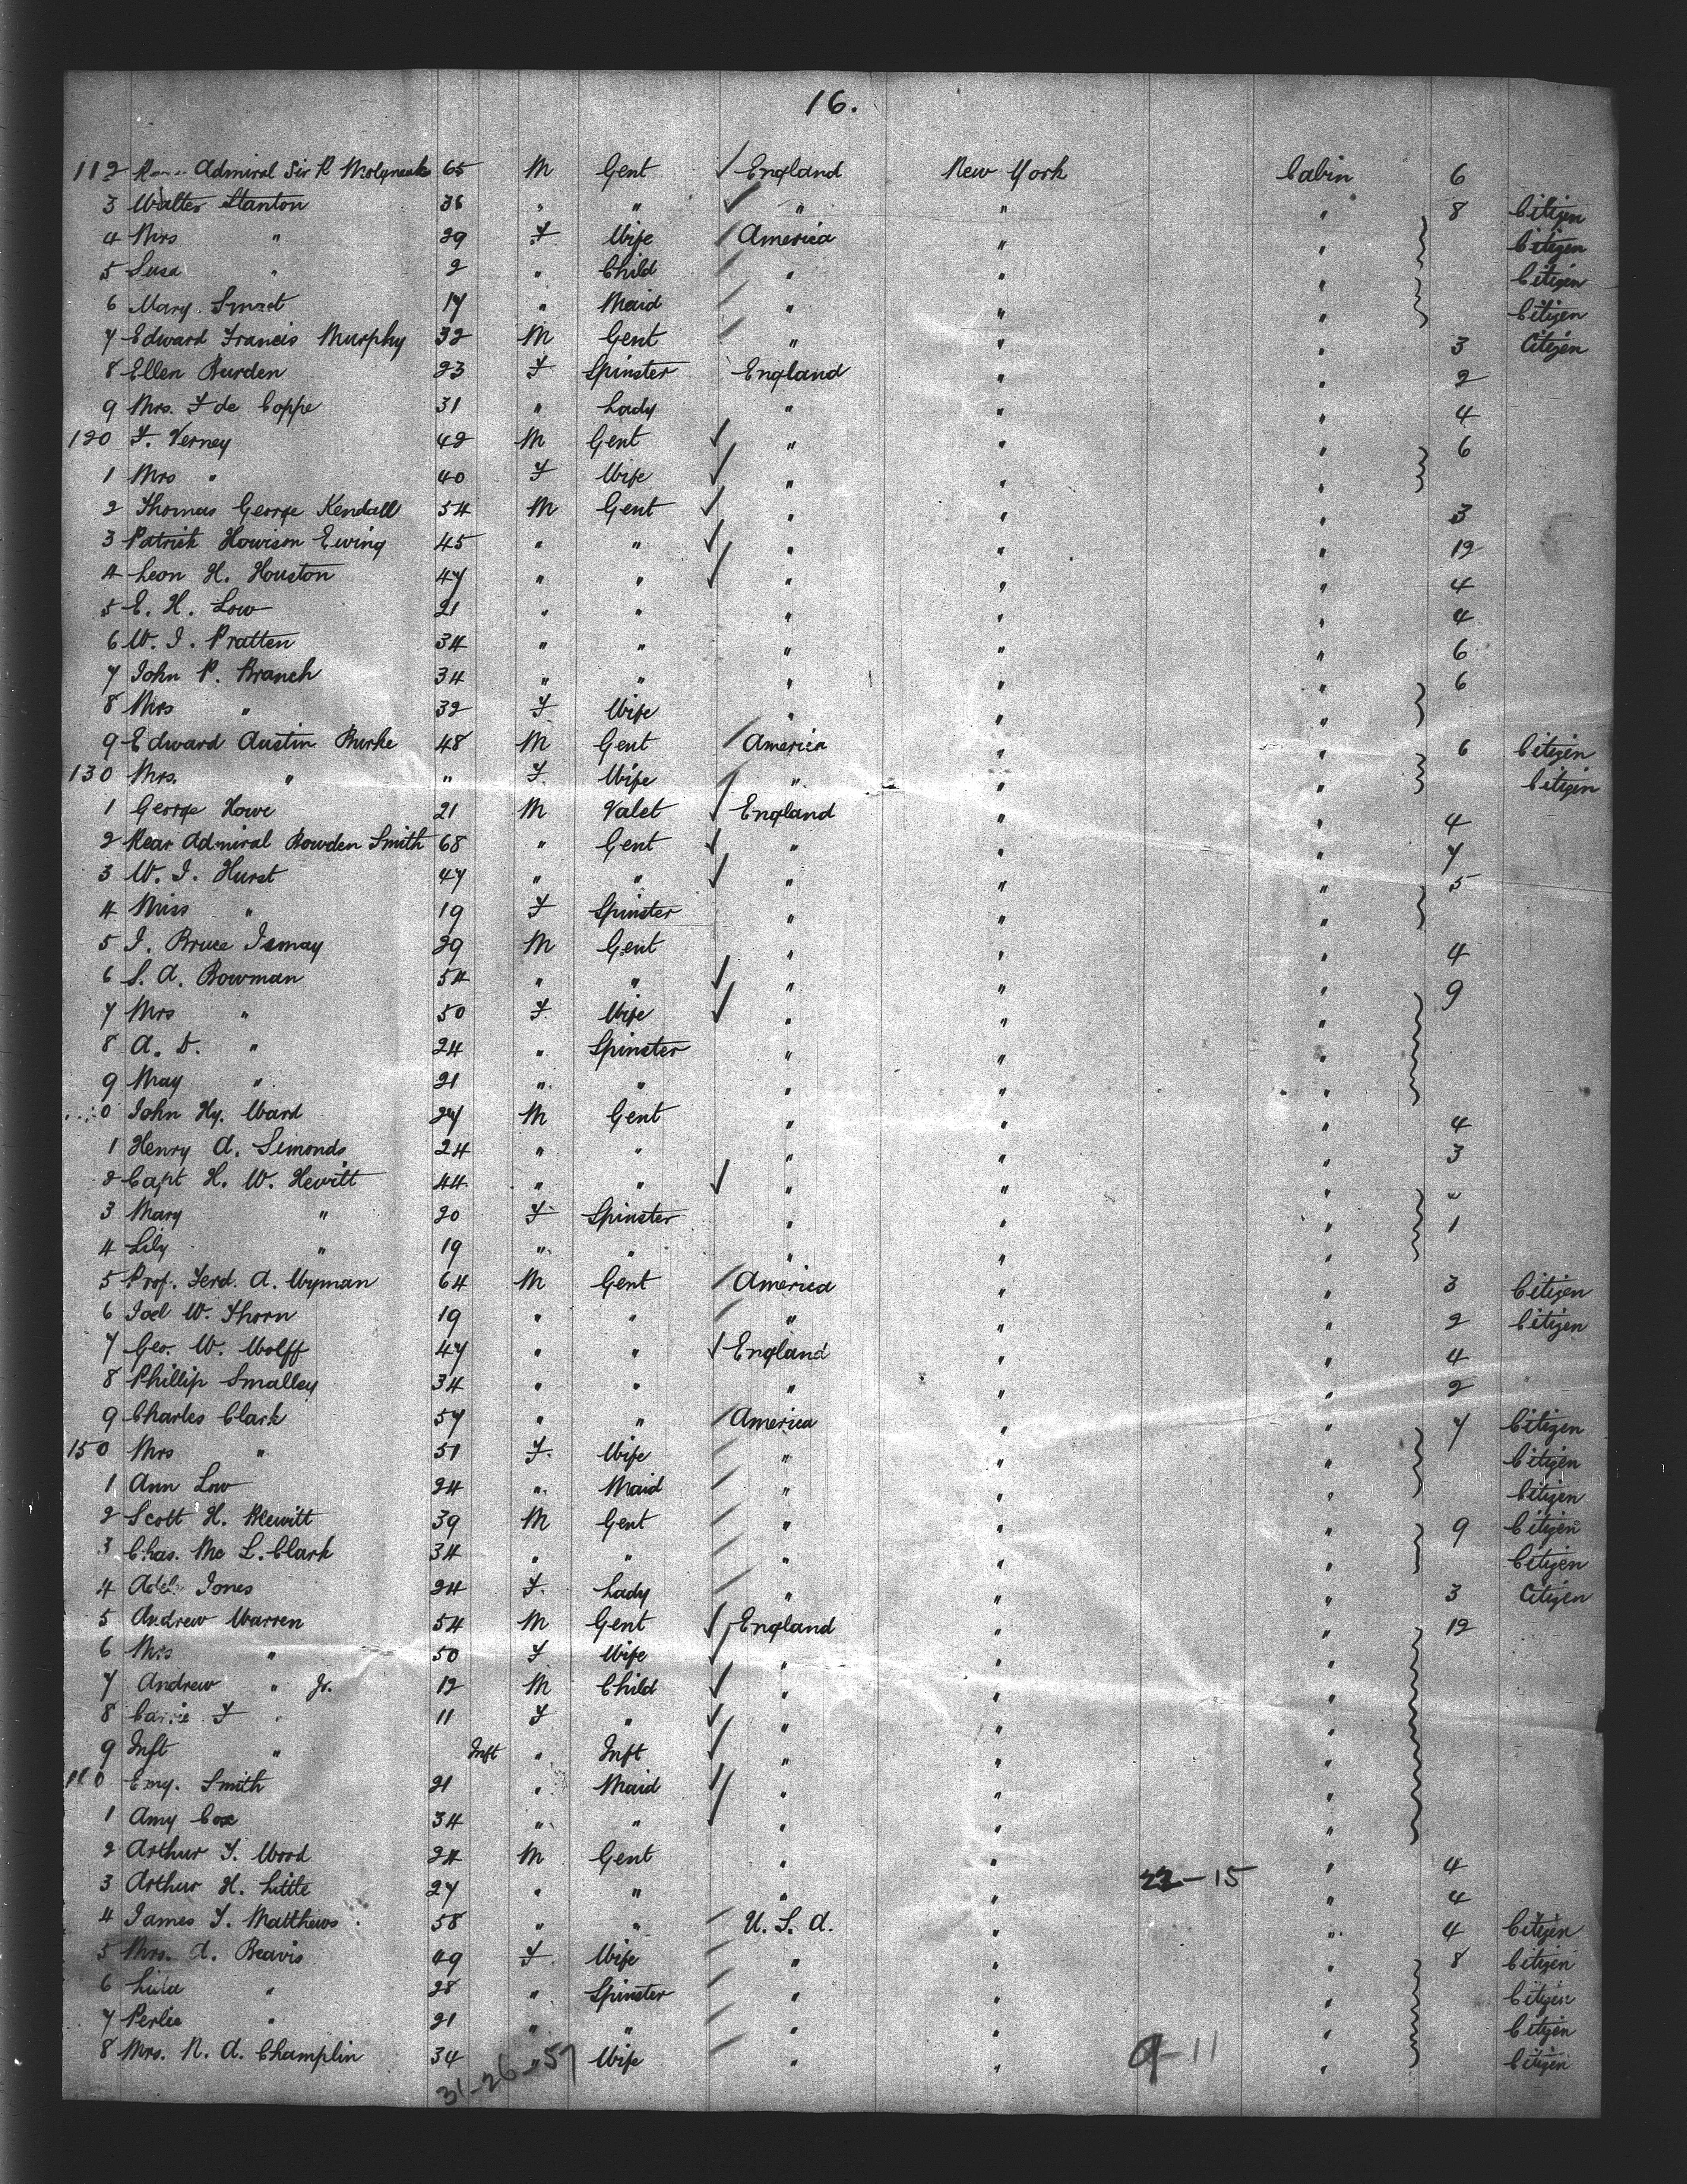 16.
112 Admiral Sir R Molyneux 65 M Gent England New York Cabin 6
3 Walter Stanton 36 " " " " " 8 Citizen
4 Mrs " 29 F Wife America " " Citizen
5 Susa " 2 " Child " " " Citizen
6 Mary Smart 17 " Maid " " " Citizen
7 Edward Francis Murphy 32 M Gent " " " 3 Citizen
8 Ellen Burden 23 F Spinster England " " 2
9 Mrs. F de Coppe 31 " Lady " " " 4
120 F. Verney 42 M Gent " " " 6
1 Mrs " 40 F Wife " " "
2 Thomas George Kendall 54 M Gent " " " 3
3 Patrick Howison Ewing 45 " " " " " 12
4 Leon H. Houston 47 " " " " " 4
5 E. H. Low 21 " " " " " 4
6 W. J. Pratten 34 " " " " " 6
7 John P. Branch 34 " " " " " 6
8 Mrs " 32 F Wife " " "
9 Edward Austin Burke 48 M Gent America " " 6 Citizen
130 Mrs. " " F Wife " " " Citizen
1 George Howe 21 M Valet England " " 4
2 Rear Admiral Bowden Smith 68 " Gent " " " 7
3 W. J. Hurst 47 " " " " " 5
4 Miss " 19 F Spinster " " "
5 J. Bruce Ismay 29 M Gent " " " 4
6 S. A. Bowman 54 " " " " " 9
7 Mrs " 50 F Wife " " "
8 A. D. " 24 " Spinster " " "
9 May " 21 " " " " "
0 John Hy. Ward 27 M Gent " " " 4
1 Henry A. Simonds 24 " " " " " 3
2 Capt H. W. Hewitt 44 " " " " "
3 Mary " 20 F Spinster " " " 1
4 Lily " 19 " " " " "
5 Prof. Ferd. A. Wyman 64 M Gent America " " 3 Citizen
6 Joel W. Thorn 19 " " " " " 2 Citizen
7 Geo. W. Wolff 47 " " England " " 4
8 Phillip Smalley 34 " " " " " 2
9 Charles Clark 57 " " America " " 7 Citizen
150 Mrs " 51 F. Wife " " " Citizen
1 Ann Low 24 " Maid " " " Citizen
2 Scott H. Blewitt 39 M Gent " " " 9 Citizen
3 Chas. Mc L. Clark 34 " " " " " Citizen
4 Jones 24 F. Lady " " " 3 Citizen
5 Andrew Warren 54 M Gent England " " 12
6 Mrs " 50 F. Wife " " "
7 Andrew " Jr. 12 M Child " " "
8 Carrie F " 11 F " " " "
9 Inft " Inft " Inft " " "
160 Emy. Smith 21 " Maid " " "
1 Amy Cox 34 " " " " "
2 Arthur F. Wood 24 M Gent " " " 4
3 Arthur H. Little 27 " " " " 22-15 " 4
4 James F. Matthews 58 " " U. S. A. " " 4 Citizen
5 Mrs. A. Beavis 49 F. Wife " " " 8 Citizen
6 " 28 " Spinster " " " Citizen
7 Perlee " 21 " " " " " Citizen
8 Mrs. N. A. Champlin 34 " Wife " " 9-11 " Citizen
31-26-57